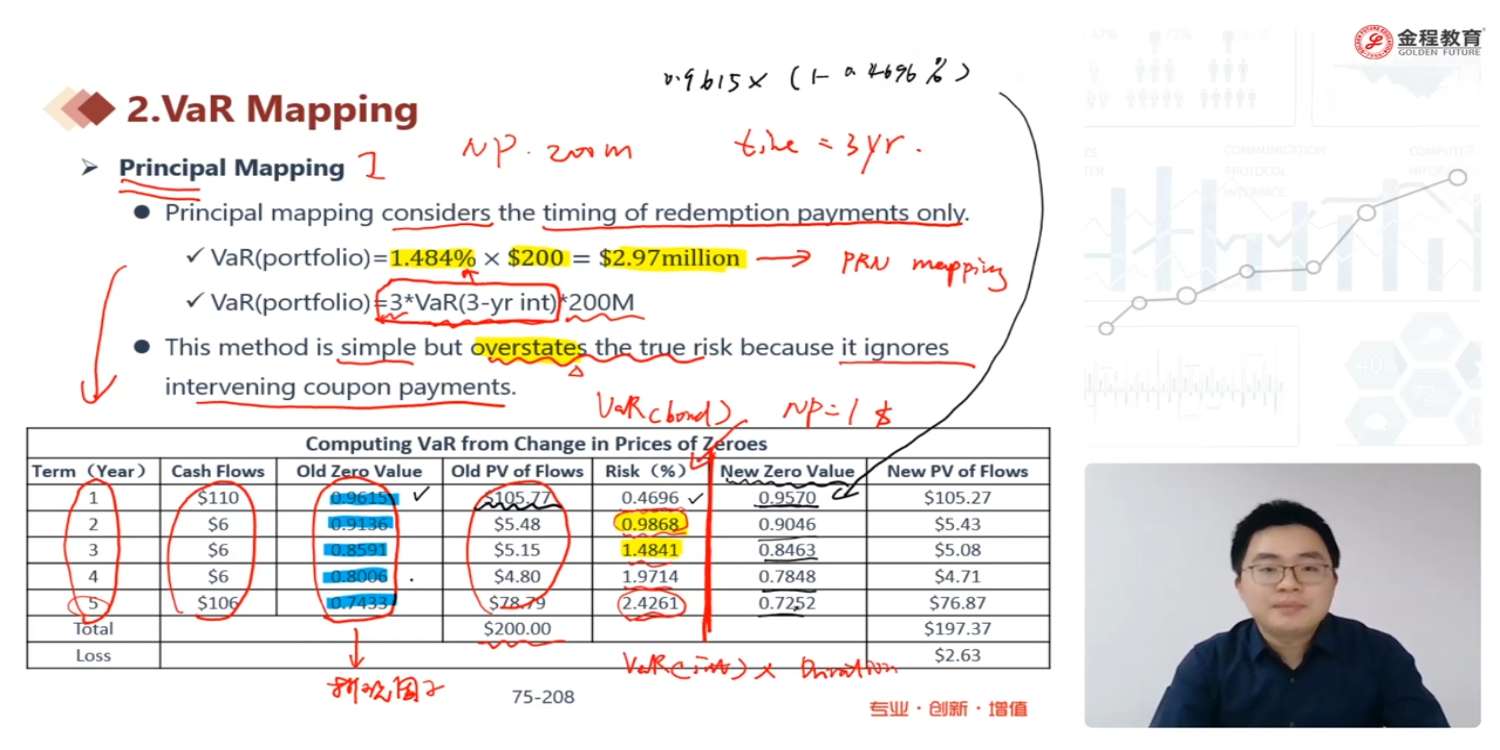 金程教育
GOLDEN FUTURE
0.9615 × (1 - 0.4696%)
2.VaR Mapping
NP. 200m
time = 3yr.
Principal Mapping
Principal mapping considers the timing of redemption payments only.
✓ VaR(portfolio)=1.484% × $200 = $2.97million
PRN mapping
✓ VaR(portfolio)=3*VaR(3-yr int)*200M
This method is simple but overstates the true risk because it ignores
intervening coupon payments.
VaR(bond) NP=1 $
Computing VaR from Change in Prices of Zeroes
Term（Year） Cash Flows Old Zero Value Old PV of Flows Risk（%） New Zero Value New PV of Flows
1 $110 0.9615 $105.77 0.4696 0.9570 $105.27
2 $6 0.9136 $5.48 0.9868 0.9046 $5.43
3 $6 0.8591 $5.15 1.4841 0.8463 $5.08
4 $6 0.8006 $4.80 1.9714 0.7848 $4.71
5 $106 0.7433 $78.79 2.4261 0.7252 $76.87
Total $200.00 $197.37
Loss $2.63
VaR(int) × Duration
折现因子
75-208
专业·创新·增值